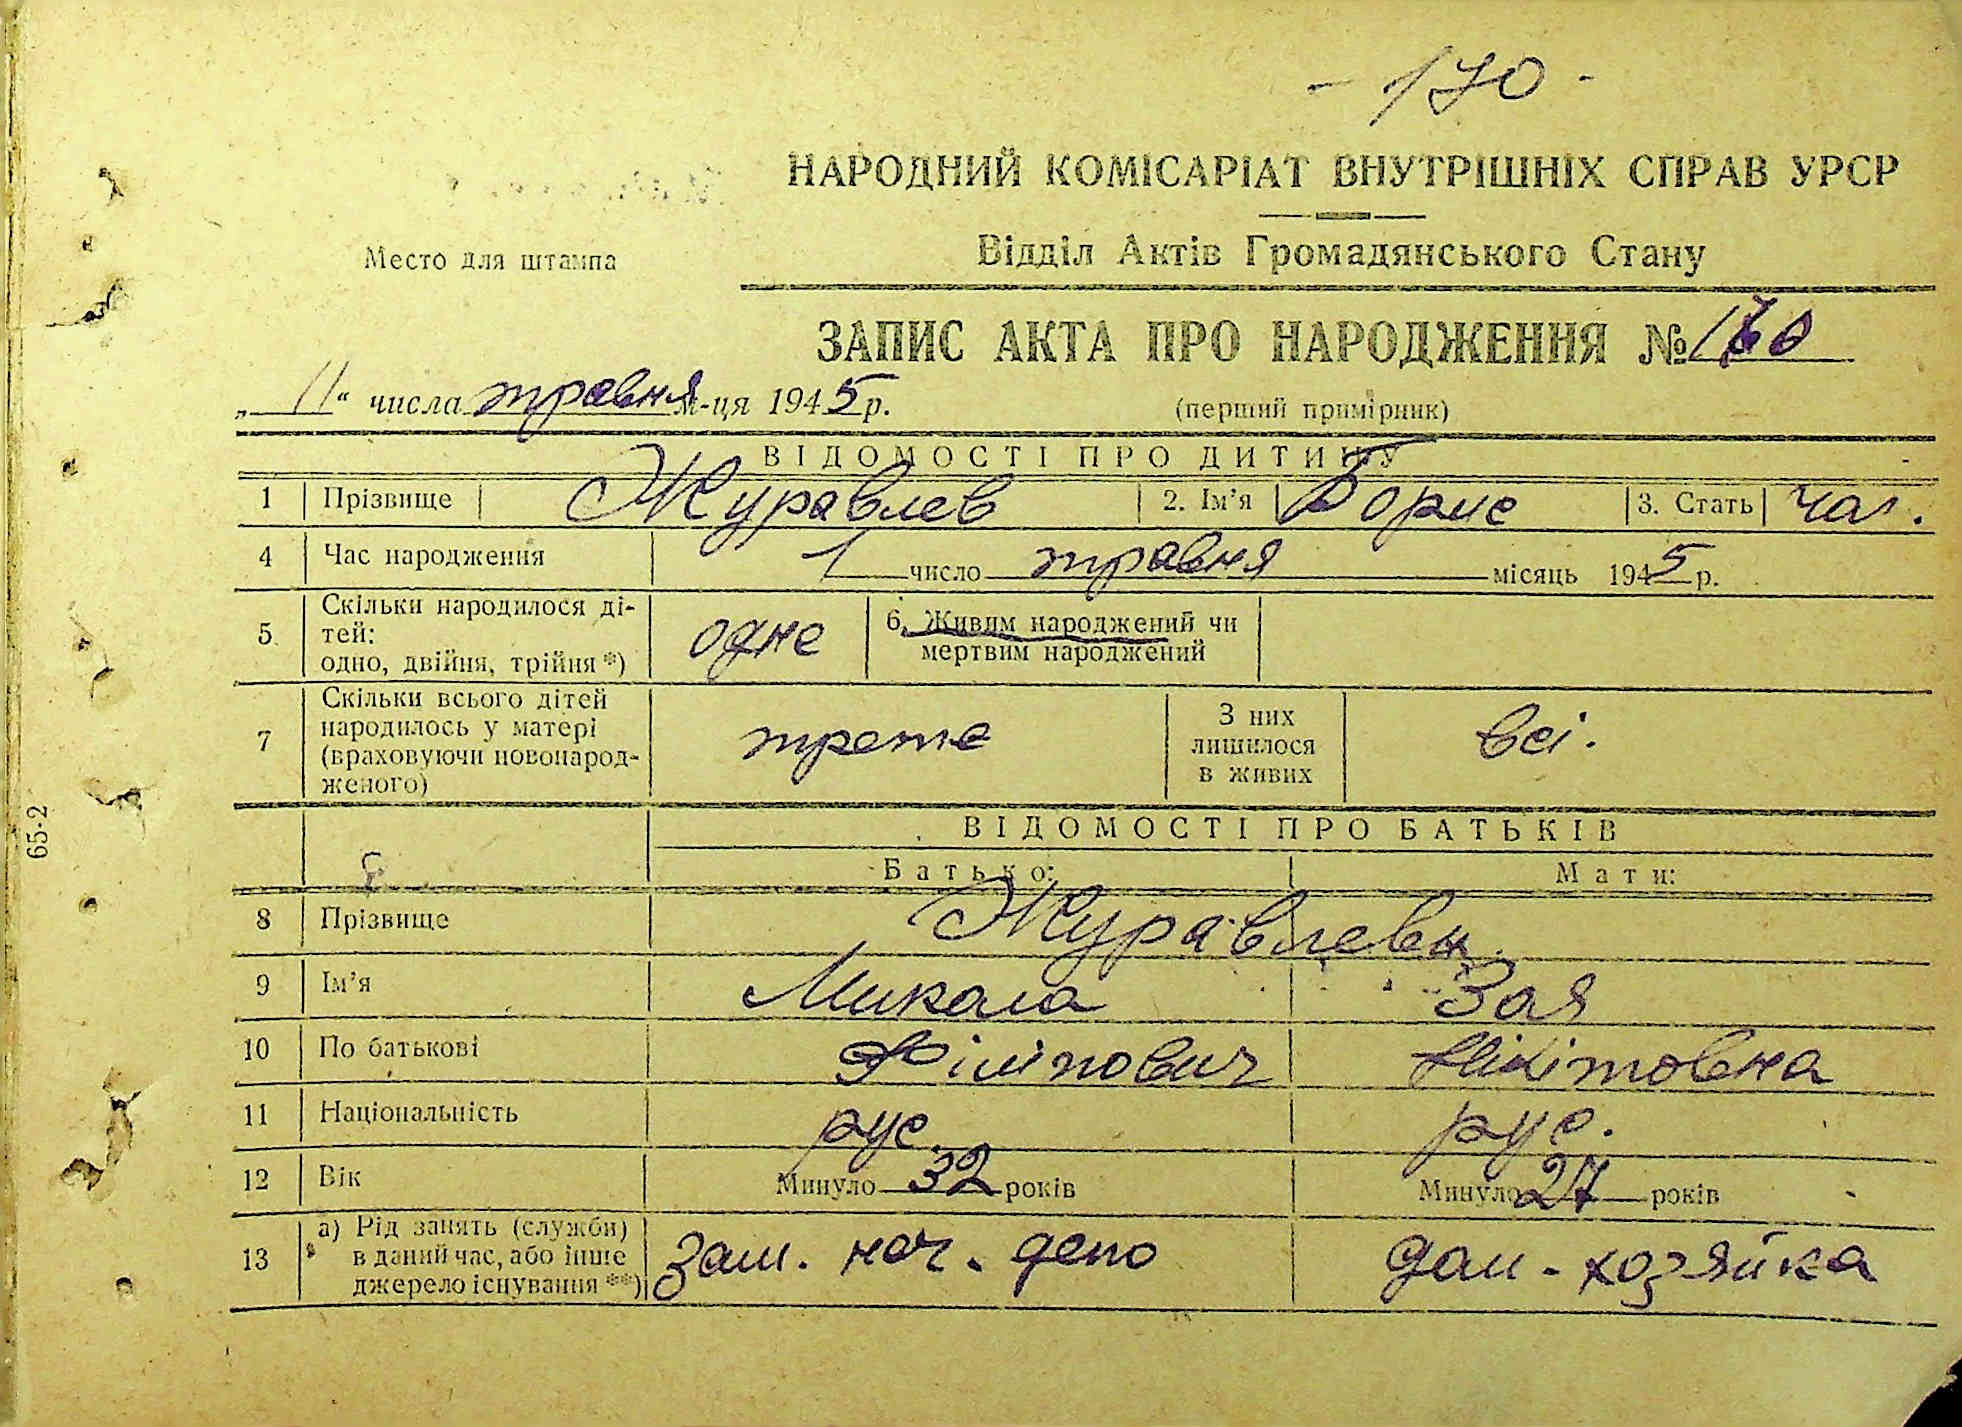 - 170 -
НАРОДНИЙ КОМІСАРІАТ ВНУТРІШНІХ СПРАВ УРСР
Место для штампа
Відділ Актів Громадянського Стану
ЗАПИС АКТА ПРО НАРОДЖЕННЯ №
„11“ числа травня м-ця 1945 р.
(перший примірник)
ВІДОМОСТІ ПРО ДИТИНУ
1 Прізвище Журавлев 2. Ім’я Борис 3. Стать чол.
4 Час народження 1 число травня місяць 1945 р.
5 Скільки народилося ді-
тей:
одно, двійня, трійня *) одне
6. Живим народжений чи
мертвим народжений
7 Скільки всього дітей
народилось у матері
(враховуючи новонарод-
женого) третє
З них
лишилося
в живих всі.
65-2
ВІДОМОСТІ ПРО БАТЬКІВ
Батько: Мати:
8 Прізвище Журавлевы
9 Ім’я Микола Зоя
10 По батькові Філіпович Нікітовна
11 Національність рус рус.
12 Вік Минуло 32 років Минуло 27 років
13 а) Рід занять (служби)
в даний час, або інше
джерело існування **) зам. нач. депо дом-хозяйка